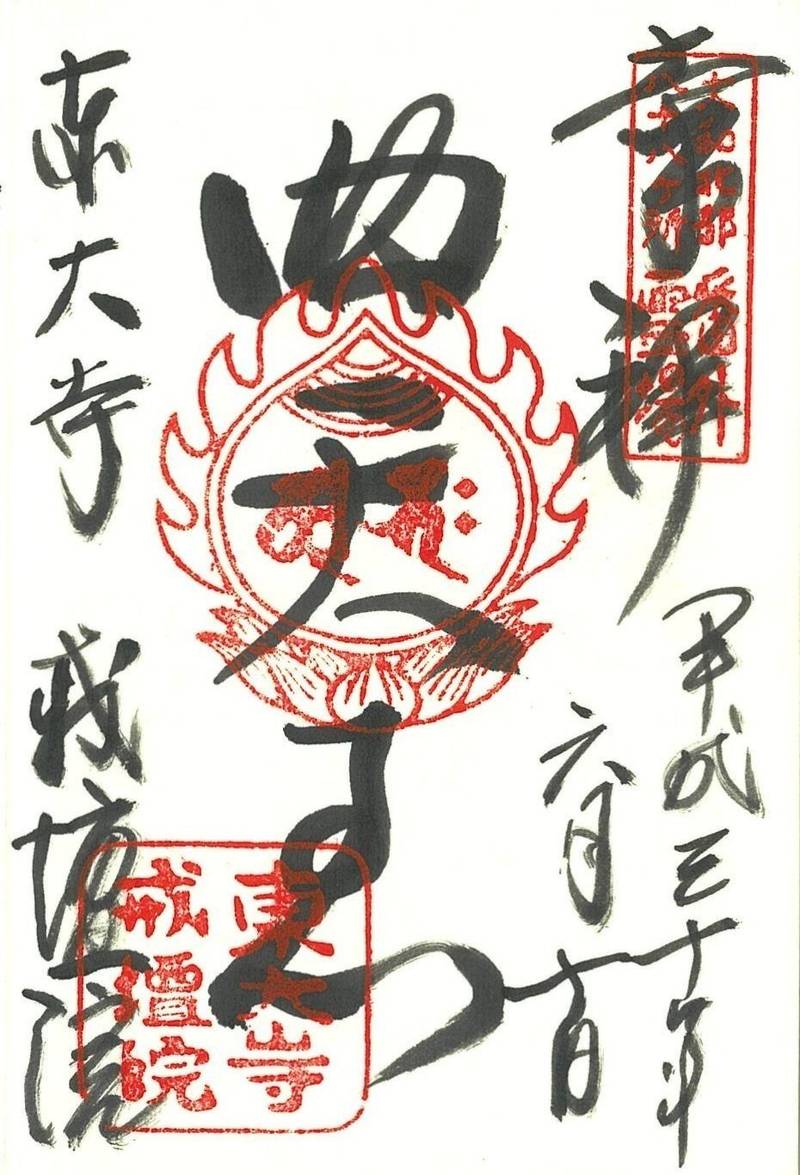 奉拝
大和北部
八十八ヶ所霊場
平成三十年
六月十日
四天王
東大寺
戒壇院
東大寺 戒壇院